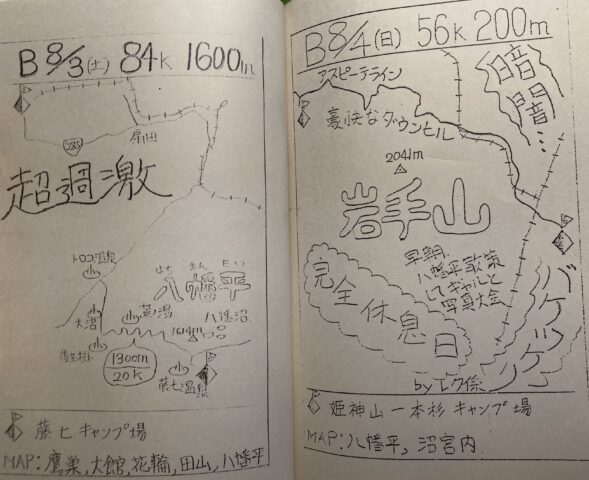 B 8/3(土) 84k 1600m
超過激
トロコ温泉
はちまんたい
八幡平
大沼
蒸ノ湯
八幡沼
1614m
後生掛
1300m
20k
藤七温泉
藤七キャンプ場
MAP:鷹巣,大館,花輪,田山,八幡平
B 8/4(日) 56k 200m
アスピーテライン
豪快なダウンヒル
暗闇…
2041m
岩手山
早朝、
八幡平散策
してギャルと
写真大会
完全休息日
by レク係
姫神山一本杉キャンプ場
MAP:八幡平,沼宮内.